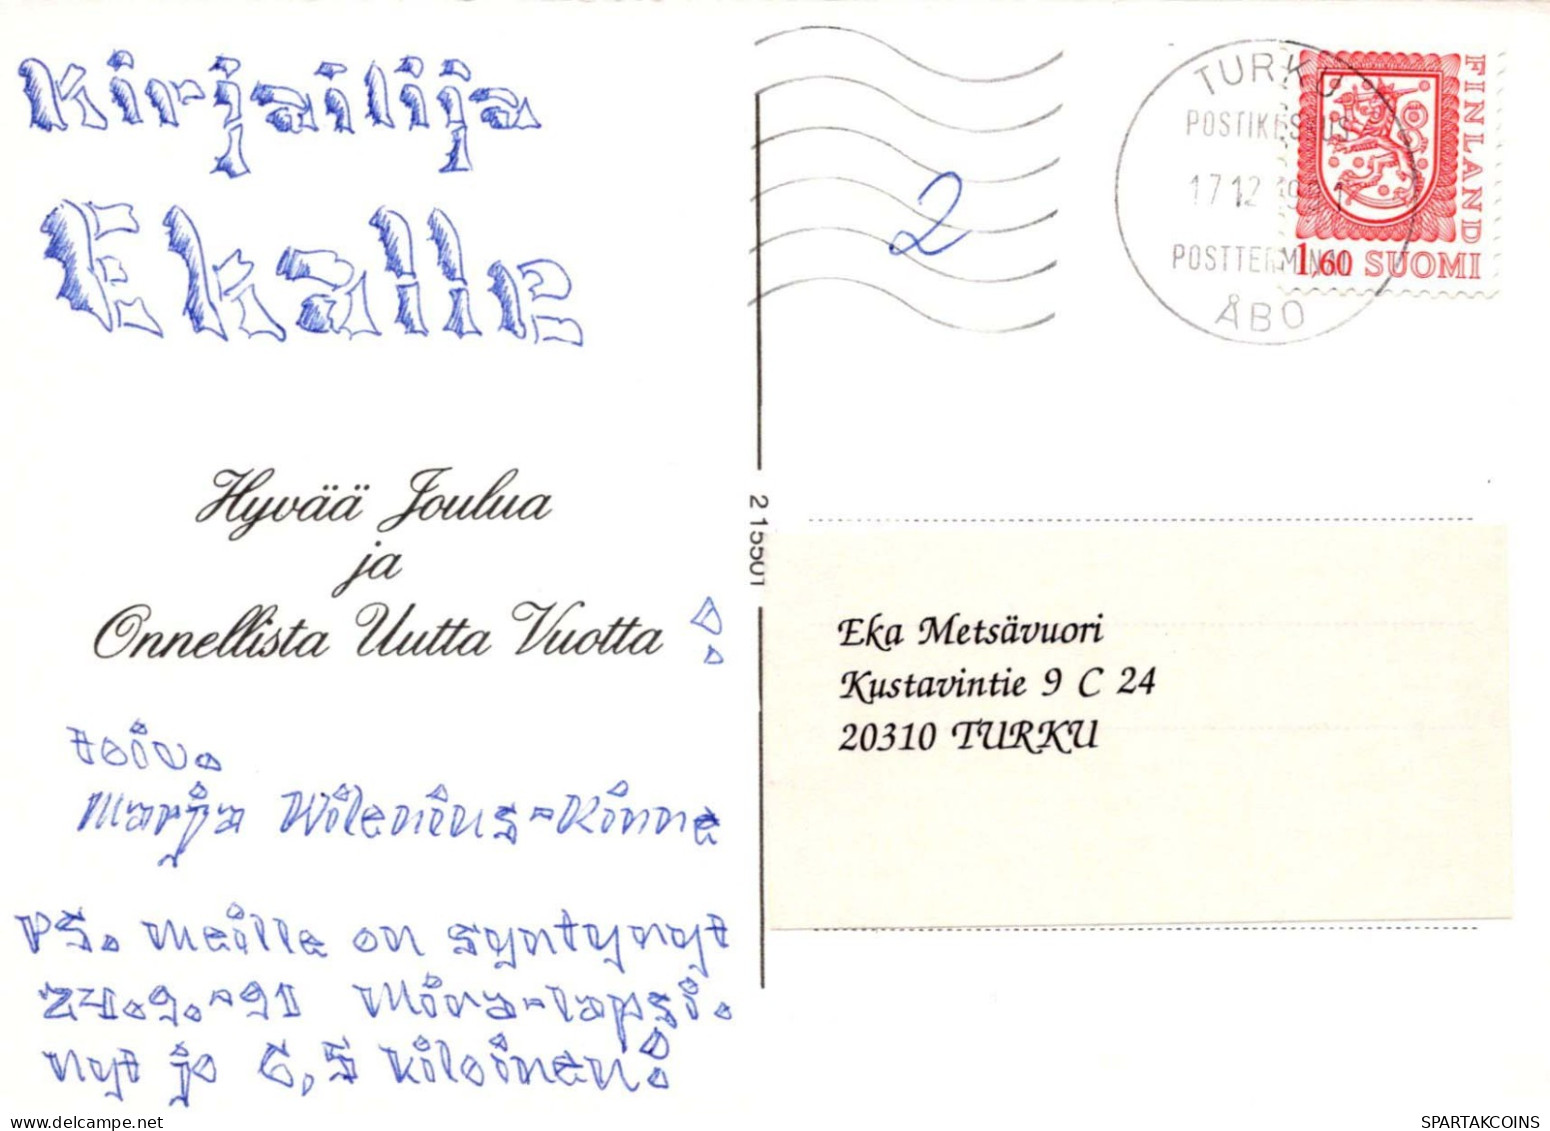 Kirjailija
Ekalle
Hyvää Joulua
ja
Onnellista Uutta Vuotta !
toiv.
Marja Wilenius-Rinne
PS. meille on syntynyt
24.9.-91 Mira-lapsi.
nyt jo 6,5 kiloinen!
2
TURKU
POSTIKESKUS
17 12 1991
POSTTERMINAL
ÅBO
FINLAND
1,60 SUOMI
2 15501
Eka Metsävuori
Kustavintie 9 C 24
20310 TURKU
SPARTAKCOINS